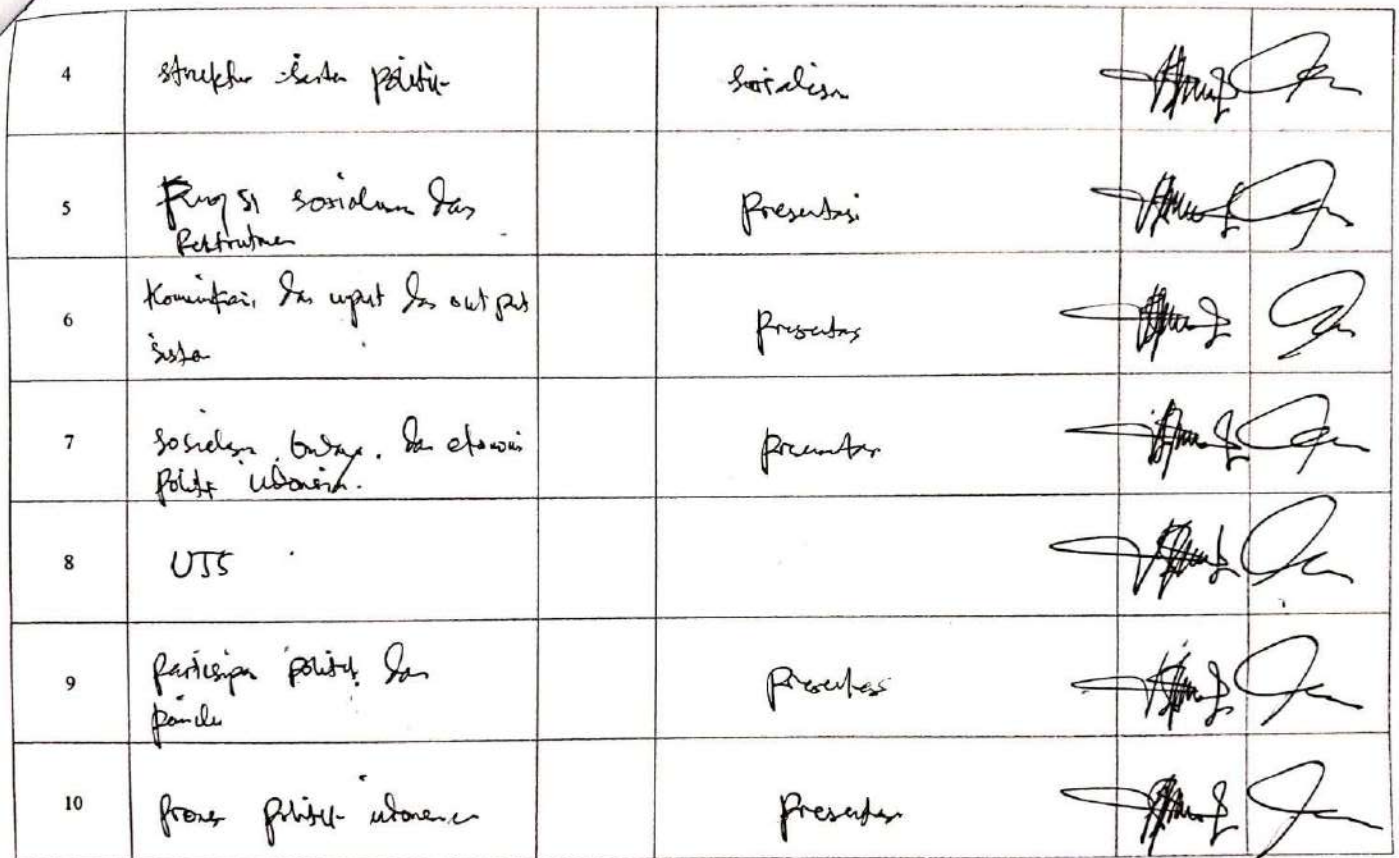 4 struktur sistem politik sosialisasi
5 Fungsi sosialisasi dan
Rekrutmen
presentasi
6 Komunikasi, dan input dan output
sistem
presentasi
7 sosialisasi, budaya, dan ekonomi
politik indonesia.
presentasi
8 UTS
9 partisipasi politik dan
pemilu
presentasi
10 proses politik indonesia presentasi